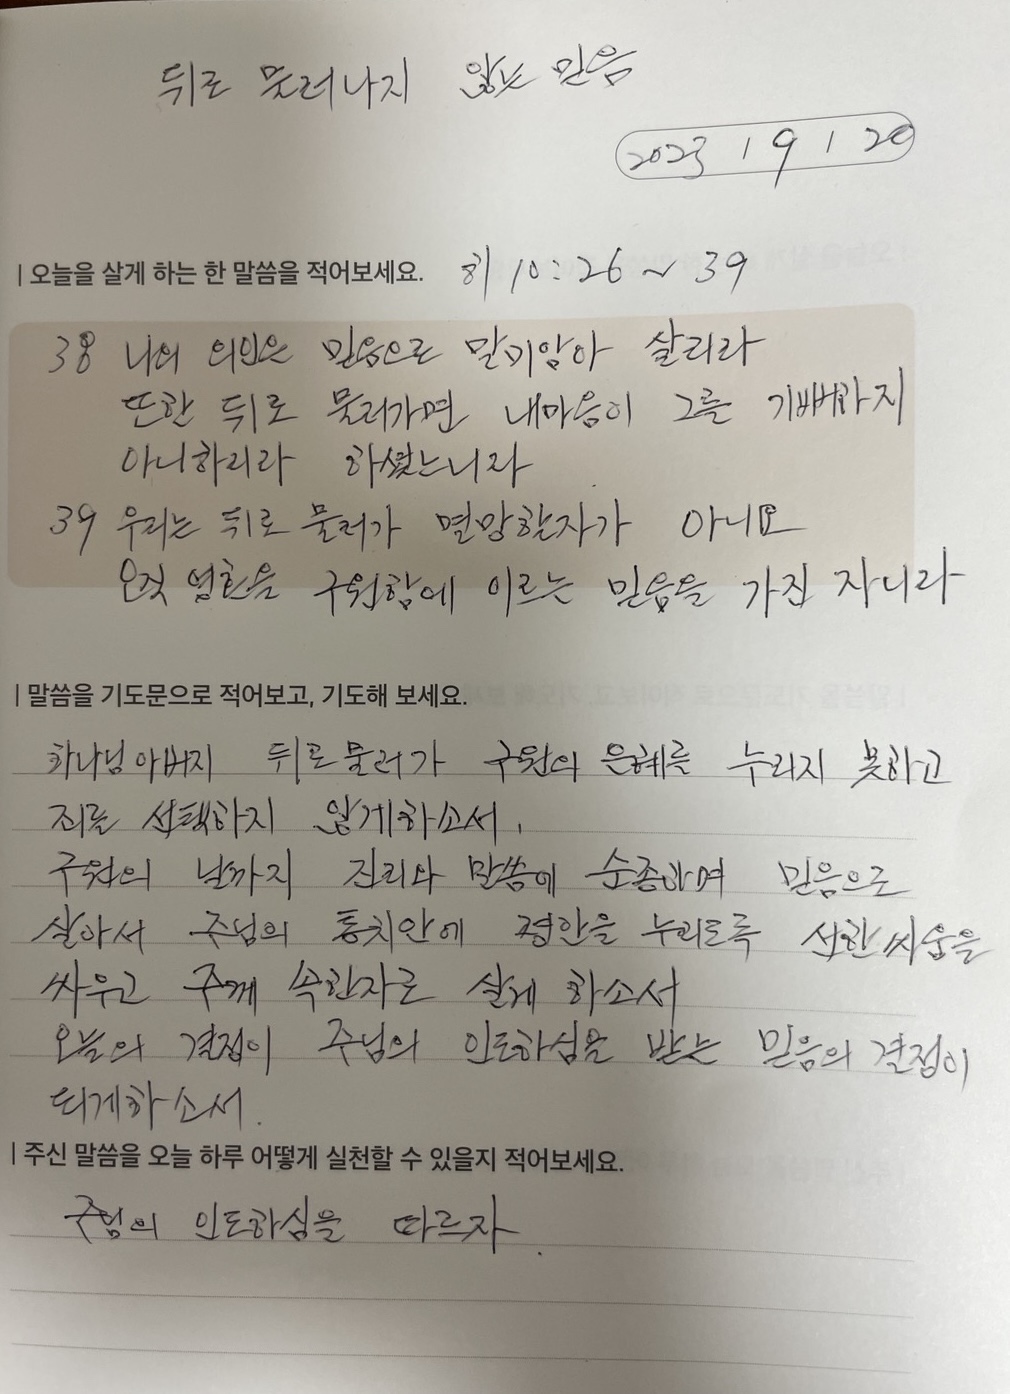 뒤로 물러나지 않는 믿음
2023 / 9 / 20
| 오늘을 살게 하는 한 말씀을 적어보세요. 히 10:26~39
38 나의 의인은 믿음으로 말미암아 살리라
또한 뒤로 물러가면 내마음이 그를 기뻐하지
아니하리라 하셨느니라
39 우리는 뒤로 물러가 멸망할자가 아니요
오직 영혼을 구원함에 이르는 믿음을 가진 자니라
| 말씀을 기도문으로 적어보고, 기도해 보세요.
하나님아버지 뒤로물러가 구원의 은혜를 누리지 못하고
죄를 선택하지 않게하소서.
구원의 날까지 진리와 말씀에 순종하며 믿음으로
살아서 주님의 통치안에 평안을 누리도록 선한싸움을
싸우고 주께 속한자로 살게 하소서
오늘의 결정이 주님의 인도하심을 받는 믿음의 결정이
되게하소서.
| 주신 말씀을 오늘 하루 어떻게 실천할 수 있을지 적어보세요.
주님의 인도하심을 따르자.